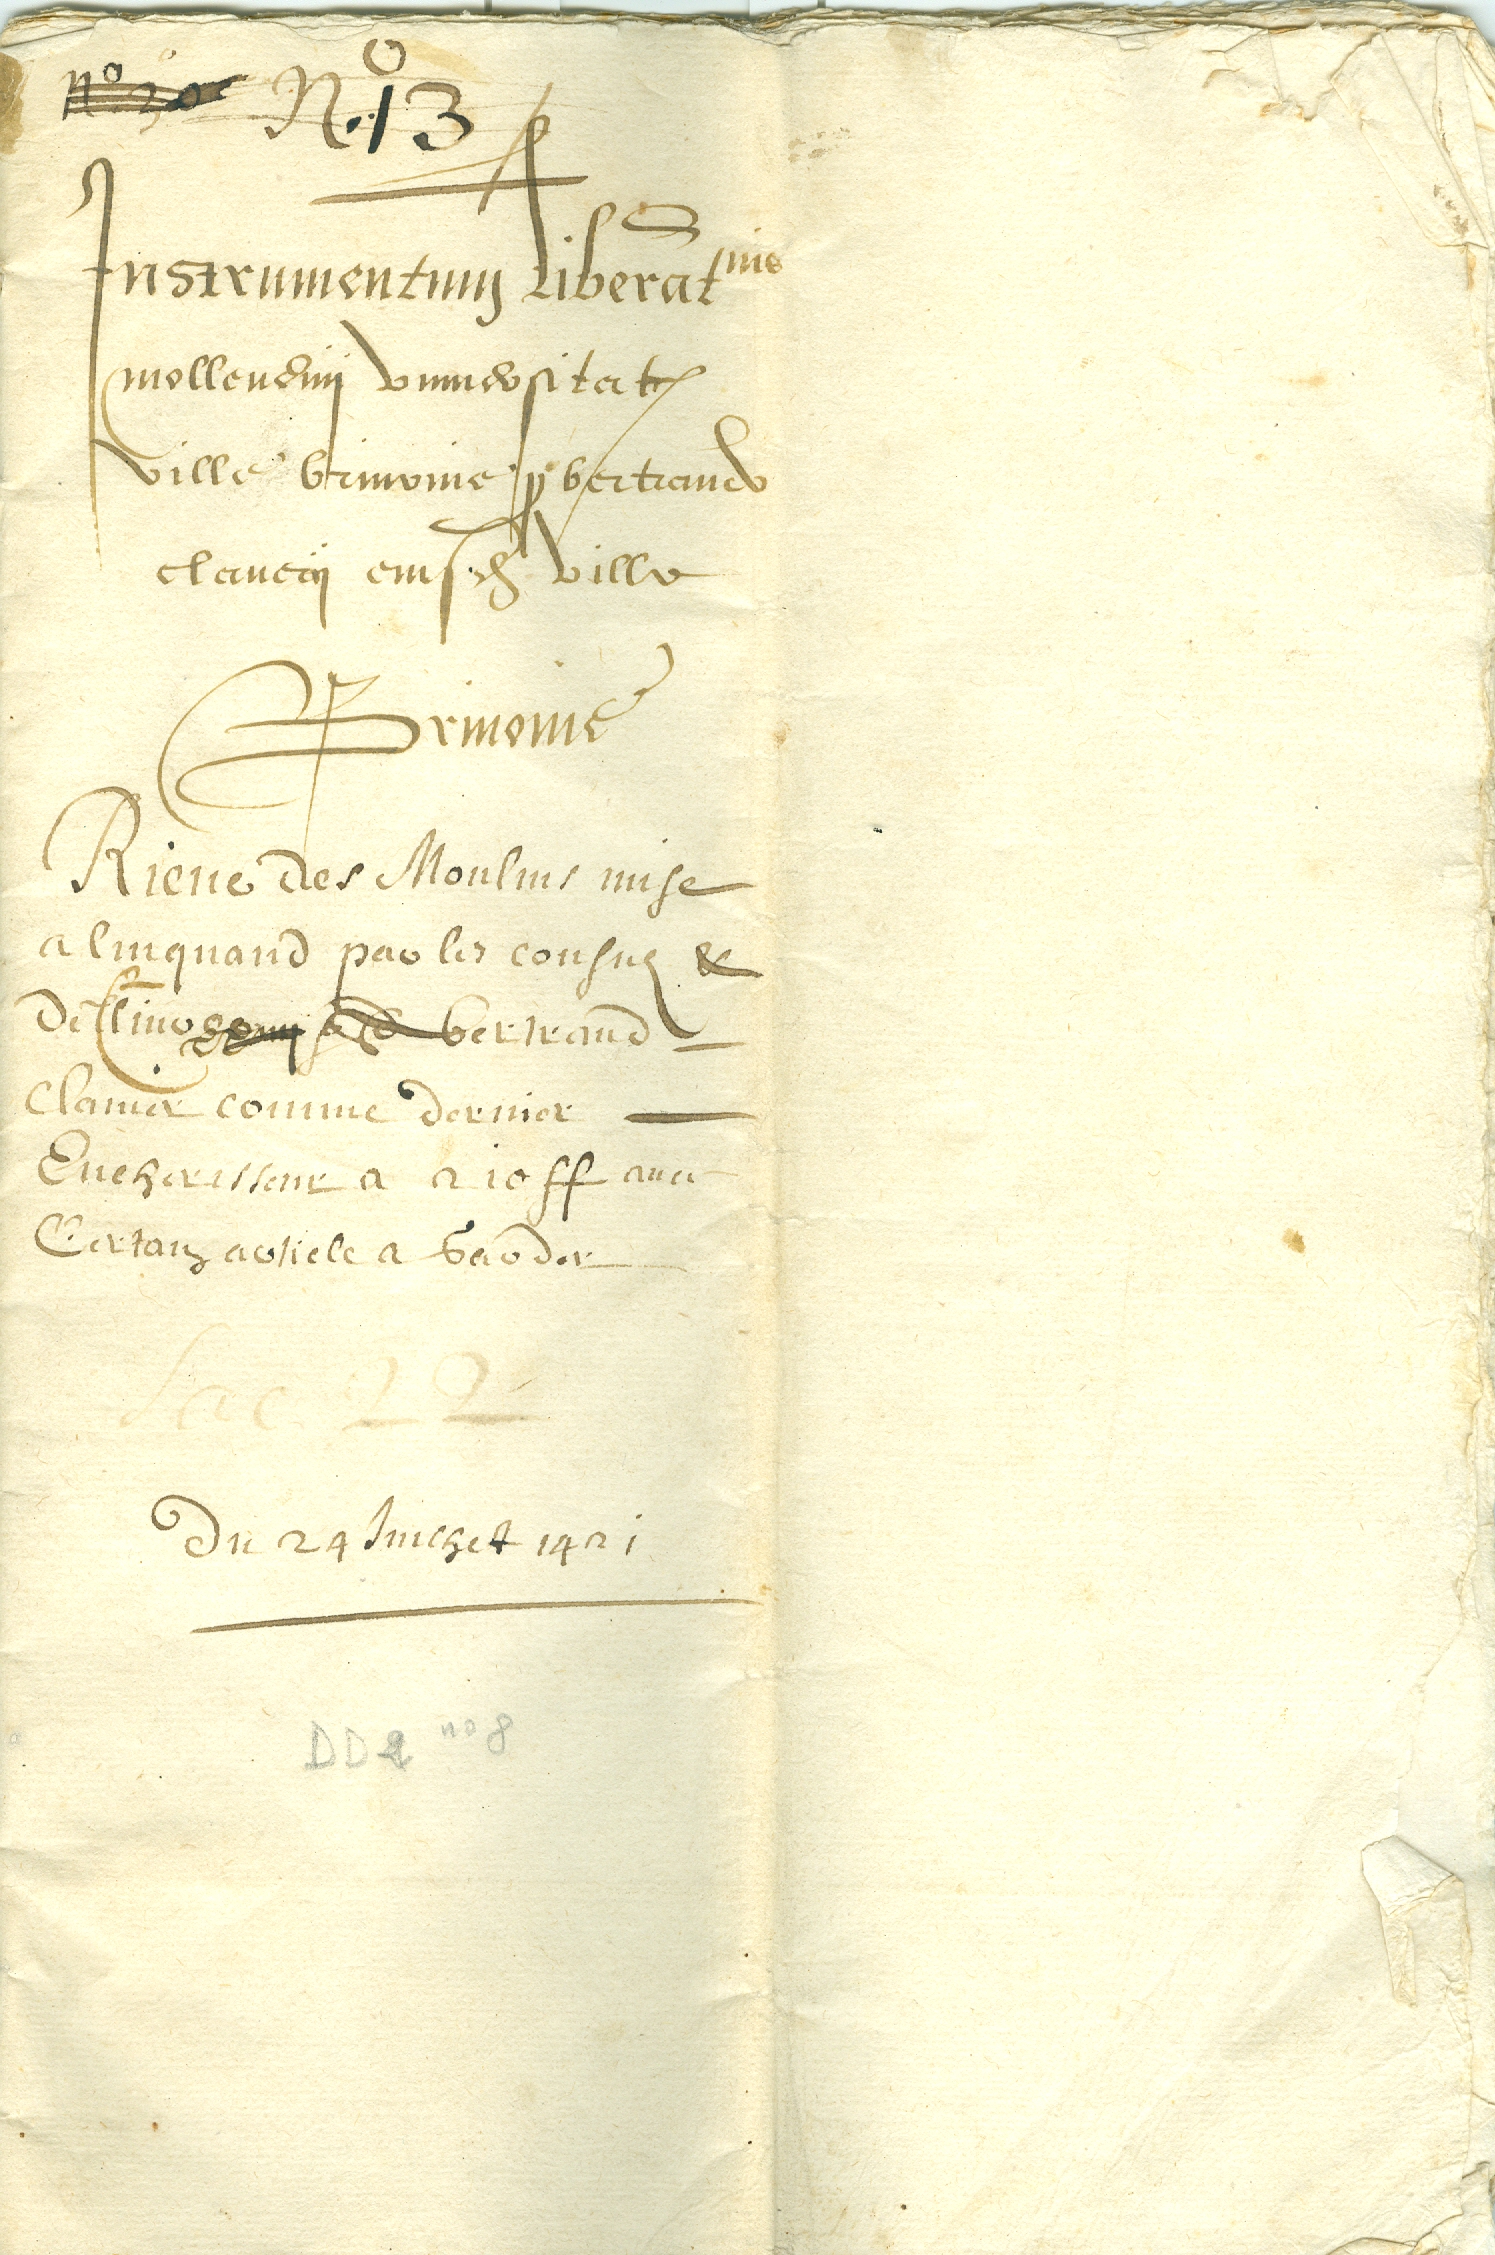 N° 20 N° 13
Instrumentum liberat nis
mollendinj universitatis
ville brinonie per bertrandum
claverij eiusdem ville
Brinonie
Riene des Moulins mise
a linquand par les consulz &
delivre bertrand
Clavier comme dernier
Encherisseur a 210 ff avec
Certanz article a garder
Sac 22
Du 24 Juichet 1421
DD2 no 8